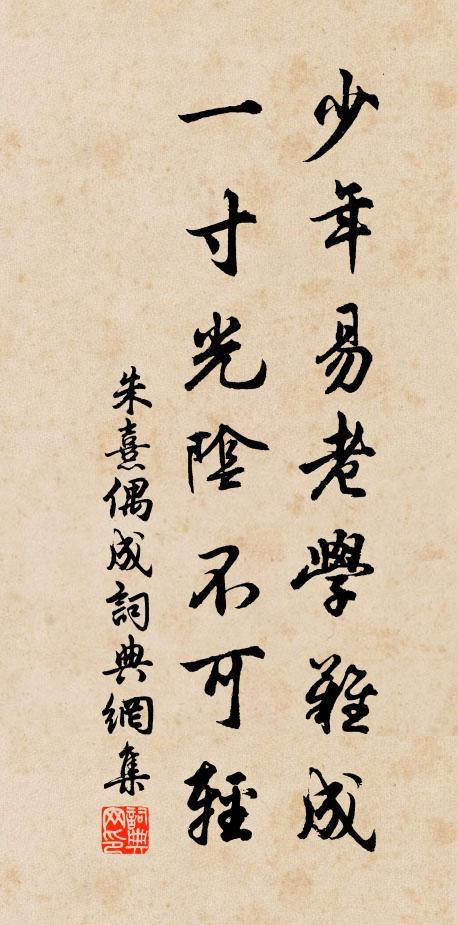 少年易老學難成
一寸光陰不可輕
朱熹偶成詞典網集
詞典
网印